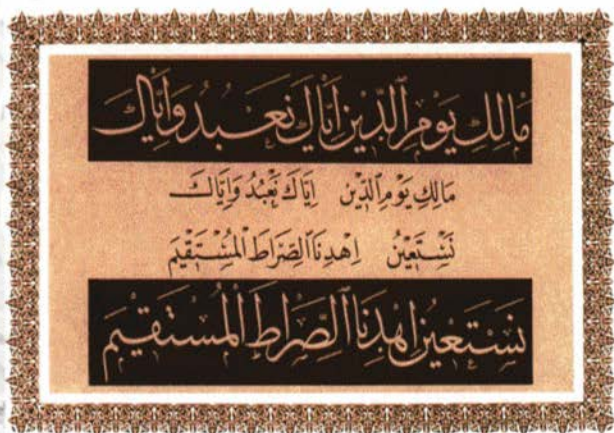 مَالِكِ يَوْمِ الدِّينِ إِيَّاكَ نَعْبُدُ وَإِيَّاكَ
مَالِكِ يَوْمِ الدِّينِ إِيَّاكَ نَعْبُدُ وَإِيَّاكَ
نَسْتَعِينُ اِهْدِنَا الصِّرَاطَ الْمُسْتَقِيمَ
نَسْتَعِينُ اِهْدِنَا الصِّرَاطَ الْمُسْتَقِيمَ